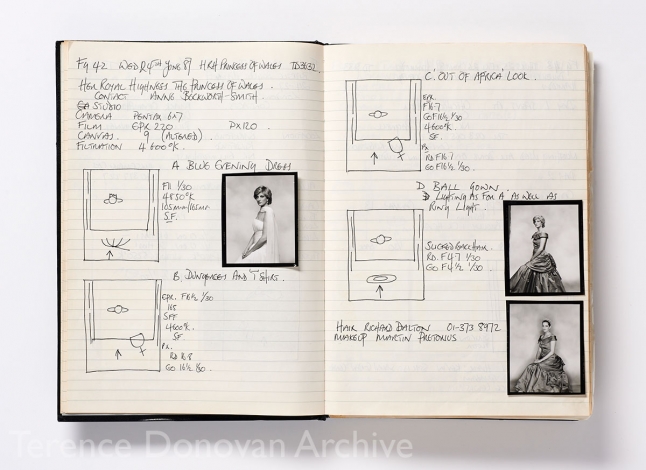 Fg 42 WED 24TH JUNE 87 HRH PRINCESS OF WALES TD3632
HER ROYAL HIGHNESS THE PRINCESS OF WALES.
CONTACT ANNE BECKWORTH-SMITH.
STUDIO
CAMERA PENTAX 6x7
FILM EPR 220 PX120.
CANVAS. 9 (ALTERED)
FILTRATION 4600°K.
A BLUE EVENING DRESS
F11 1/30
4850°K
105mm/165mm
S.F.
B. DUNGAREES AND T SHIRT.
EPR. F16½ 1/30
165
SFF
4600°K.
SF
PX.
RD 16.8
GO 16½ 1/30.
C. 'OUT OF AFRICA' LOOK.
EPR
F16.7
GO F16½ 1/30
4600°K
SF.
PX
RD F16.7
GO F16½ 1/30.
D. BALL GOWN.
LIGHTING AS FOR 'A' AS WELL AS
RING LIGHT.
HAIR.
RD. F4.7 1/30
GO F4½ 1/30.
HAIR RICHARD DALTON 01-373 8972
MAKEUP MARTIN PRETORIUS
Terence Donovan Archive